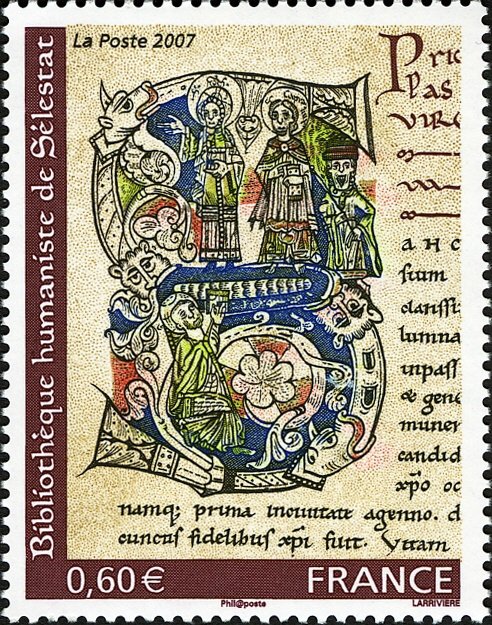 La Poste 2007
Bibliothèque humaniste de Sélestat
Pric
llas
VIRG
A H C
suum
clarissi
lumina
inpass
& gene
muner
candid
xpo oc
namq; prima inouitate agenno. d
cunctis fidelibus xpi fuit. Vitam
0,60€
FRANCE
Phil@poste
LARRIVIERE